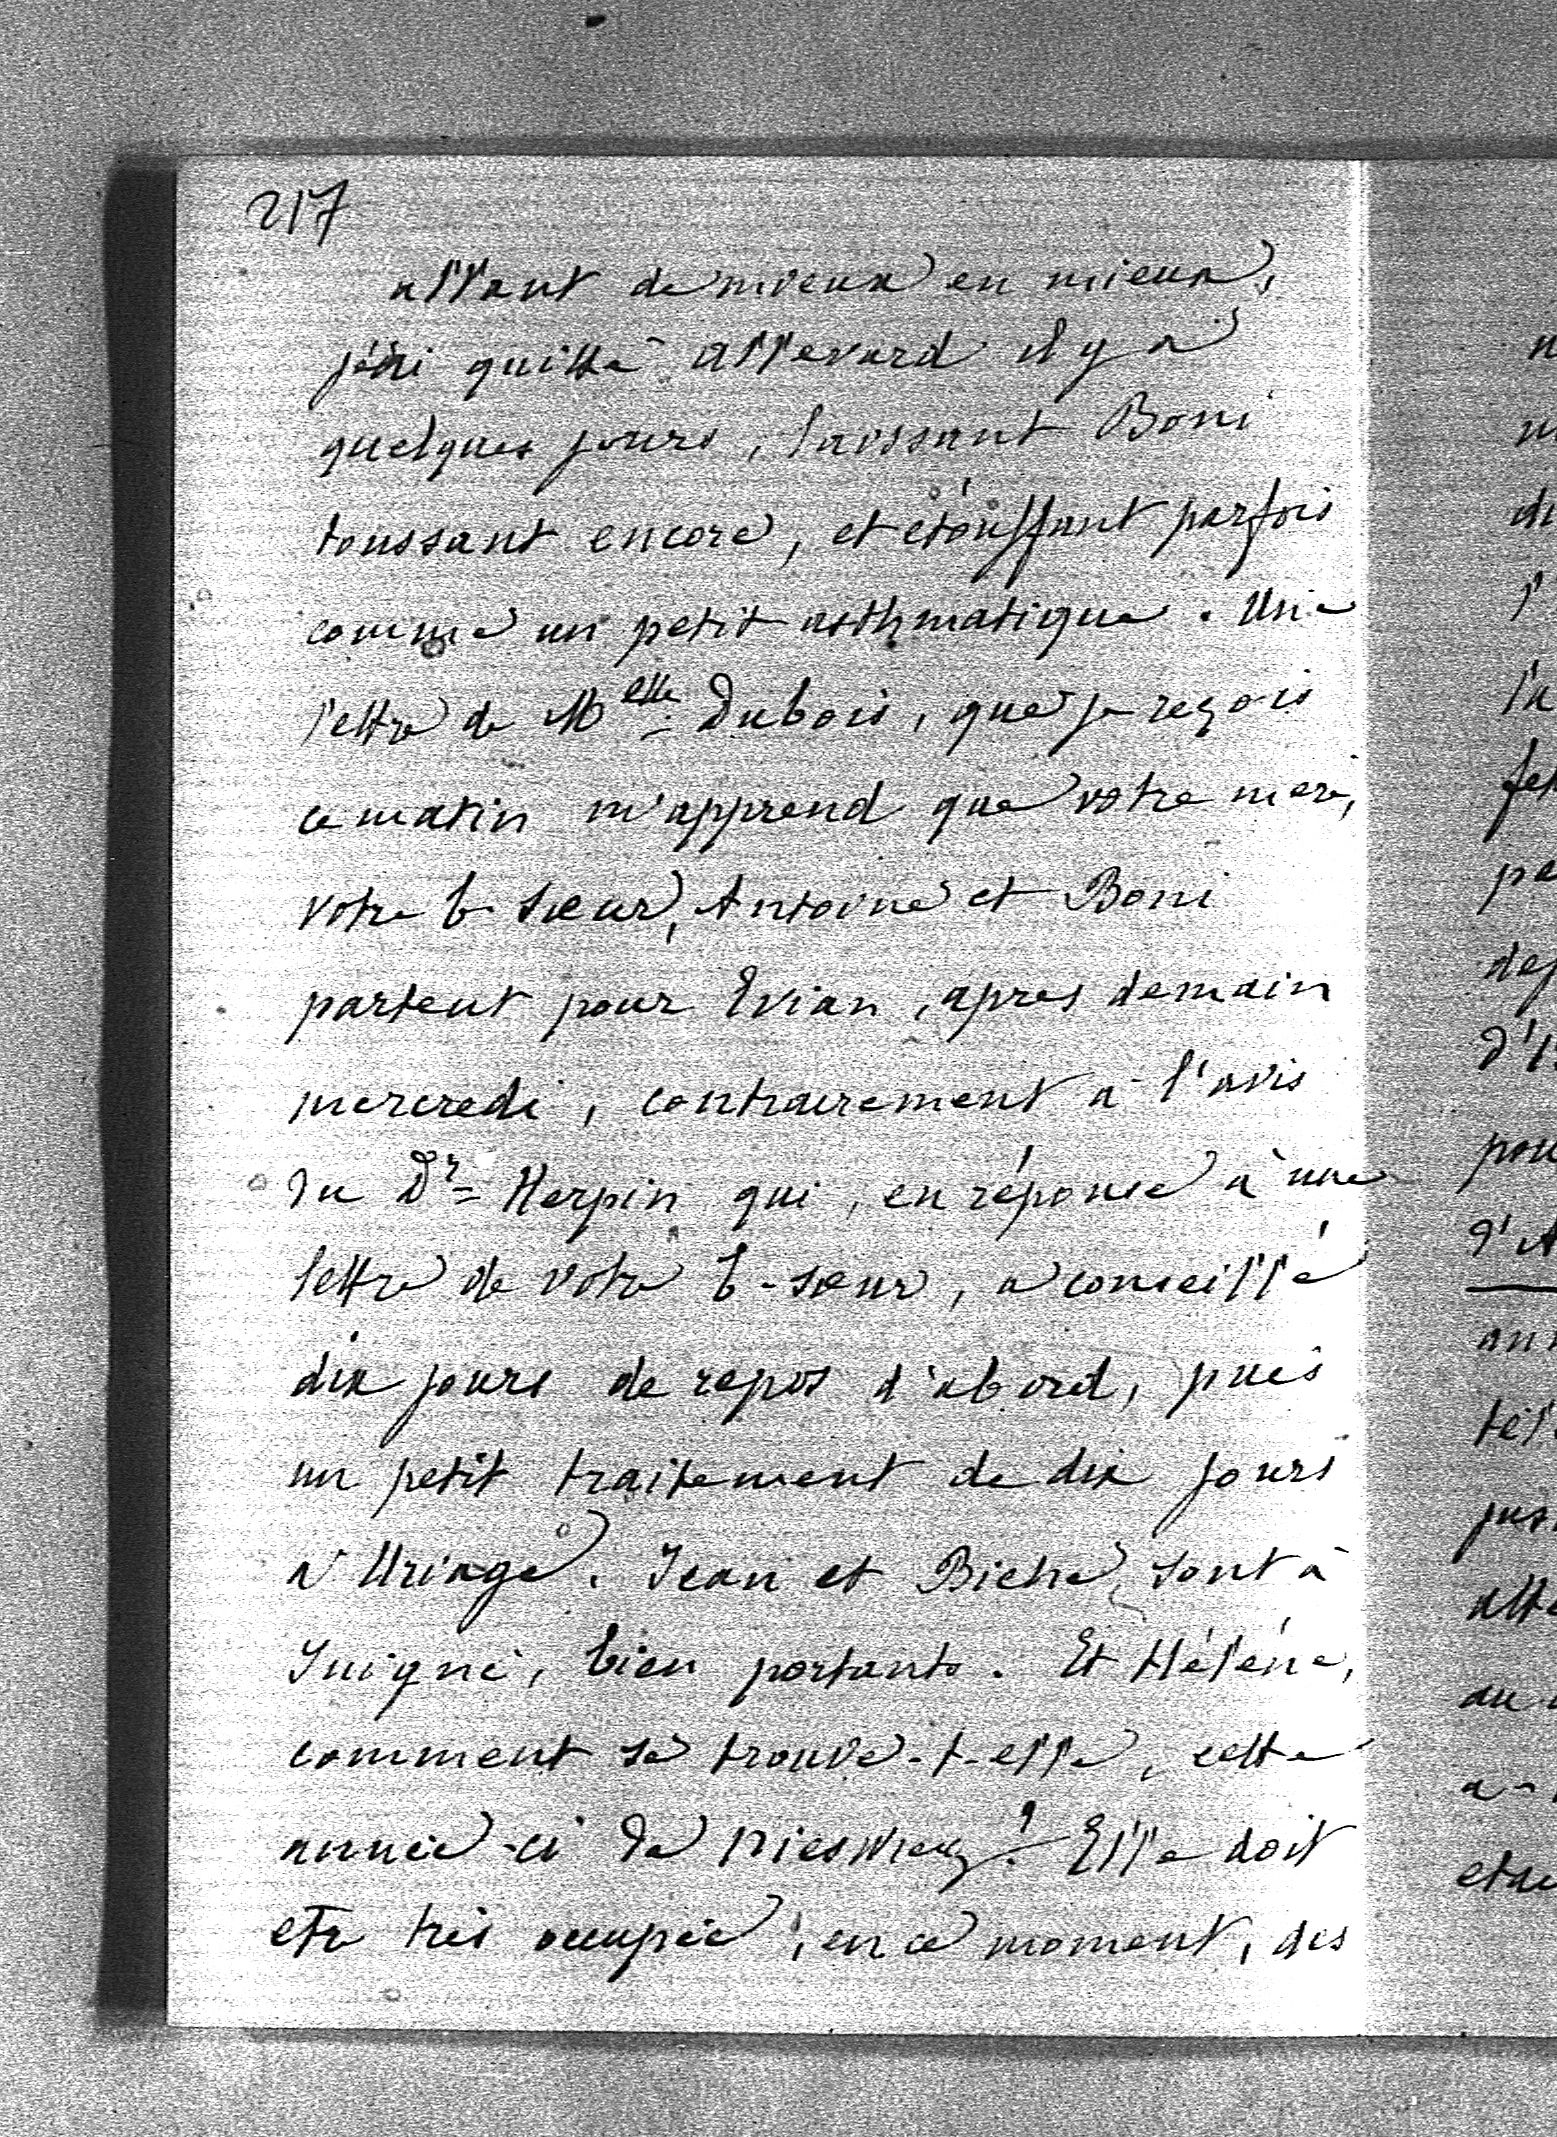 217
allant de mieux en mieux,
j'ai quitté Allevard il y a
quelques jours, laissant Boni
toussant encore, et étouffant parfois
comme un petit asthmatique. Une
lettre de Melle Dubois, que je reçois
ce matin m'apprend que votre mère,
votre b. sœur, Antoine et Boni
partent pour Evian, après demain
mercredi, contrairement à l'avis
du Dr Herpin qui, en réponse à une
lettre de votre b-sœur, a conseillé
dix jours de repos d'abord, puis
un petit traitement de dix jours
à Uriage. Jean et Biche sont à
Juigné, bien portants. Et Hélène,
comment se trouve-t-elle, cette
année-ci de ? Elle doit
etre très occupée, en ce moment, des